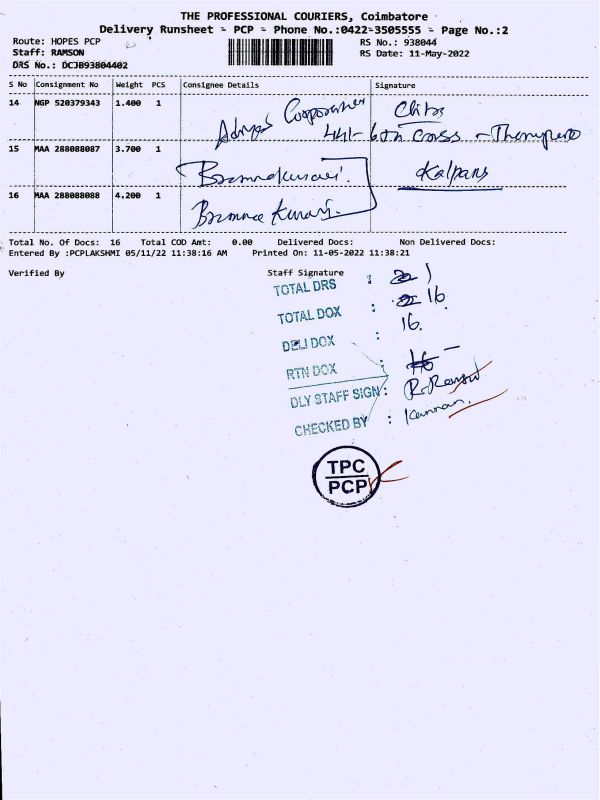 THE PROFESSIONAL COURIERS, Coimbatore
Delivery Runsheet - PCP - Phone No.:0422-3505555 - Page No.:2
Route: HOPES PCP
RS No.: 938044
Staff: RAMSON
RS Date: 11-May-2022
DRS No.: DCJB93804402
S No Consignment No Weight PCS Consignee Details Signature
14 NGP 520379343 1.400 1
441- 6th Cross
15 MAA 288088087 3.700 1
Kalpans
16 MAA 288088088 4.200 1
Total No. Of Docs: 16 Total COD Amt: 0.00 Delivered Docs: Non Delivered Docs:
Entered By :PCPLAKSHMI 05/11/22 11:38:16 AM Printed On: 11-05-2022 11:38:21
Verified By Staff Signature
TOTAL DRS : 1
TOTAL DOX : 16
DELI DOX : 16.
RTN DOX : -
DLY STAFF SIGN :
CHECKED BY : Kannan.
TPC
PCP